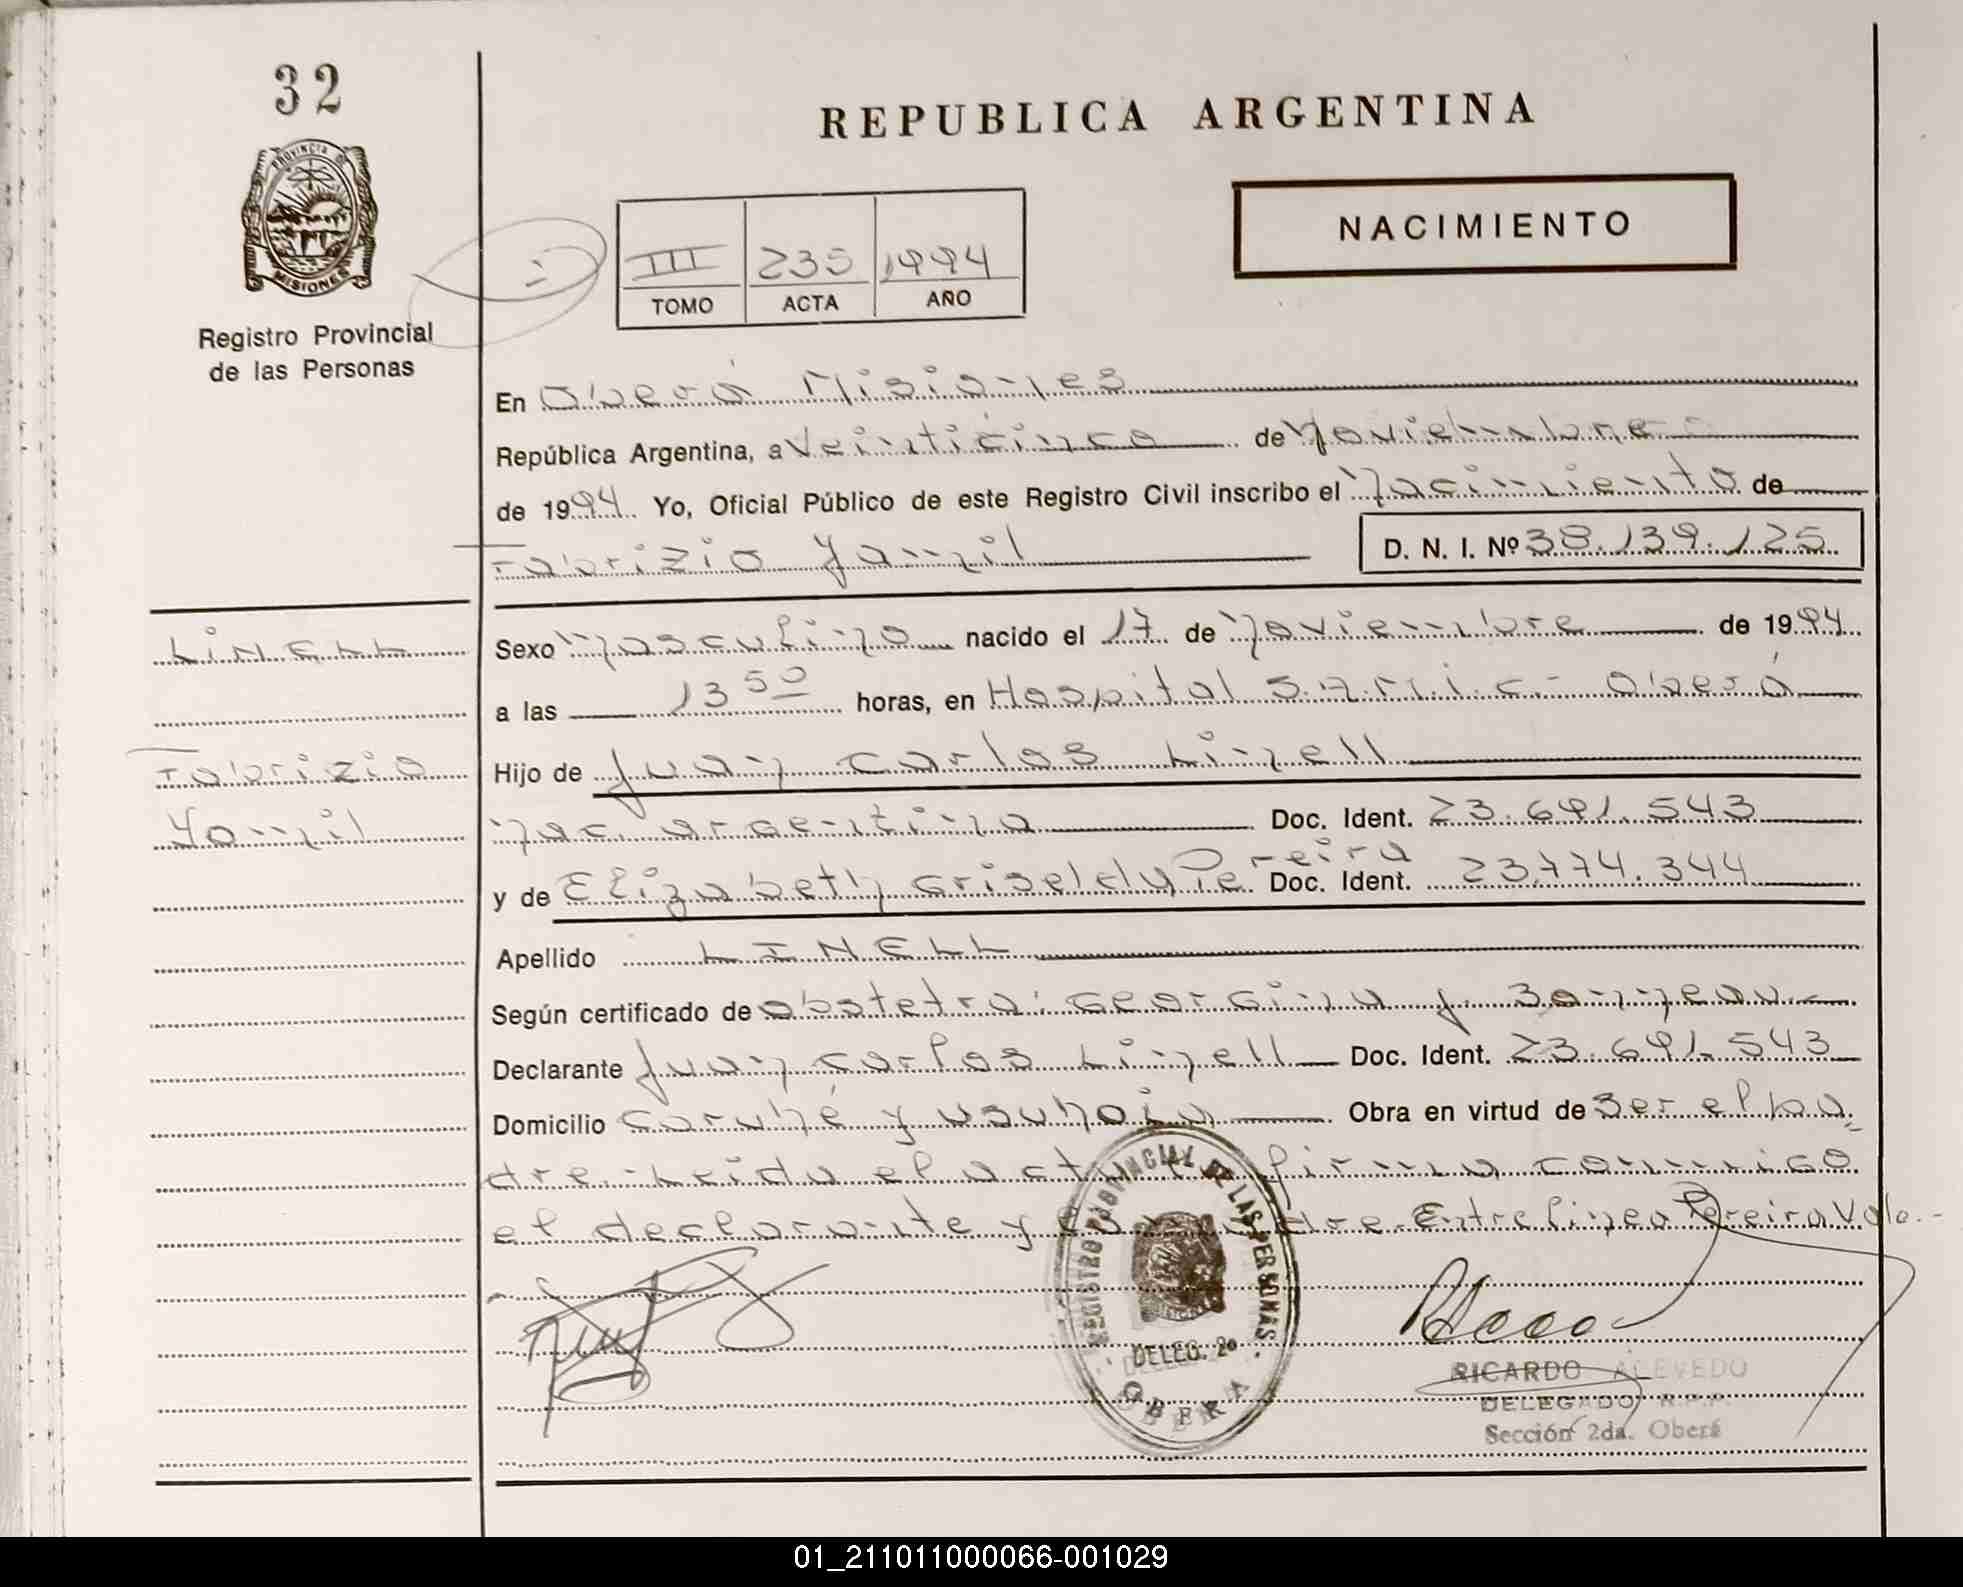 32
REPUBLICA ARGENTINA
PROVINCIA DE
MISIONES
NACIMIENTO
III 235 1994
TOMO ACTA AÑO
Registro Provincial
de las Personas
En Oberá Misiones
República Argentina, a Veinticinco de Noviembre
de 1994 Yo, Oficial Público de este Registro Civil inscribo el Nacimiento de
Fabrizio Yamil D. N. I. Nº 38.139.125
LiNELL
Fabrizio
Yamil
Sexo Masculino nacido el 17 de Noviembre de 1994
a las 13 50 horas, en Hospital Oberá
Hijo de Juan Carlos Linell
nac. argentina Doc. Ident. 23.691.543
y de Elizabeth Griselda Pereira Doc. Ident. 23.774.344
Apellido LINELL
Según certificado de obstetra: Georgina
Declarante Juan Carlos Linell Doc. Ident. 23.691.543
Domicilio Caruhé y Usuhaia Obra en virtud de Ser el pa
dre. Leida el acta firma conmigo
el declarante y Entrelinea Pereira Vale.-
REGISTRO PROVINCIAL DE LAS PERSONAS
DELEG. 2º
OBERA
RICARDO ACEVEDO
DELEGADO R.P.P.
Sección 2da. Oberá
01_211011000066-001029